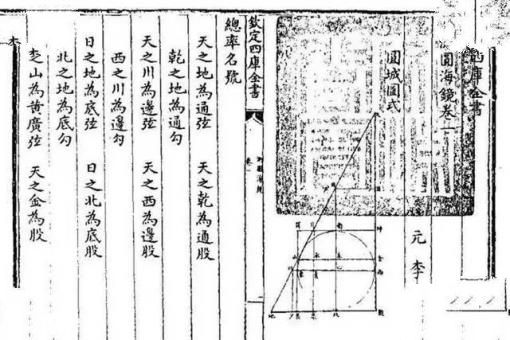 四庫全書
圓海鏡卷一
元 李
圓城圖式
欽定四庫全書
卷一
總率名號
天之地為通弦 天之乾為通股
乾之地為通勾
天之川為邊弦 天之西為邊股
西之川為邊勾
日之地為底弦 日之北為底股
北之地為底勾
山為黃廣弦 天之金為股